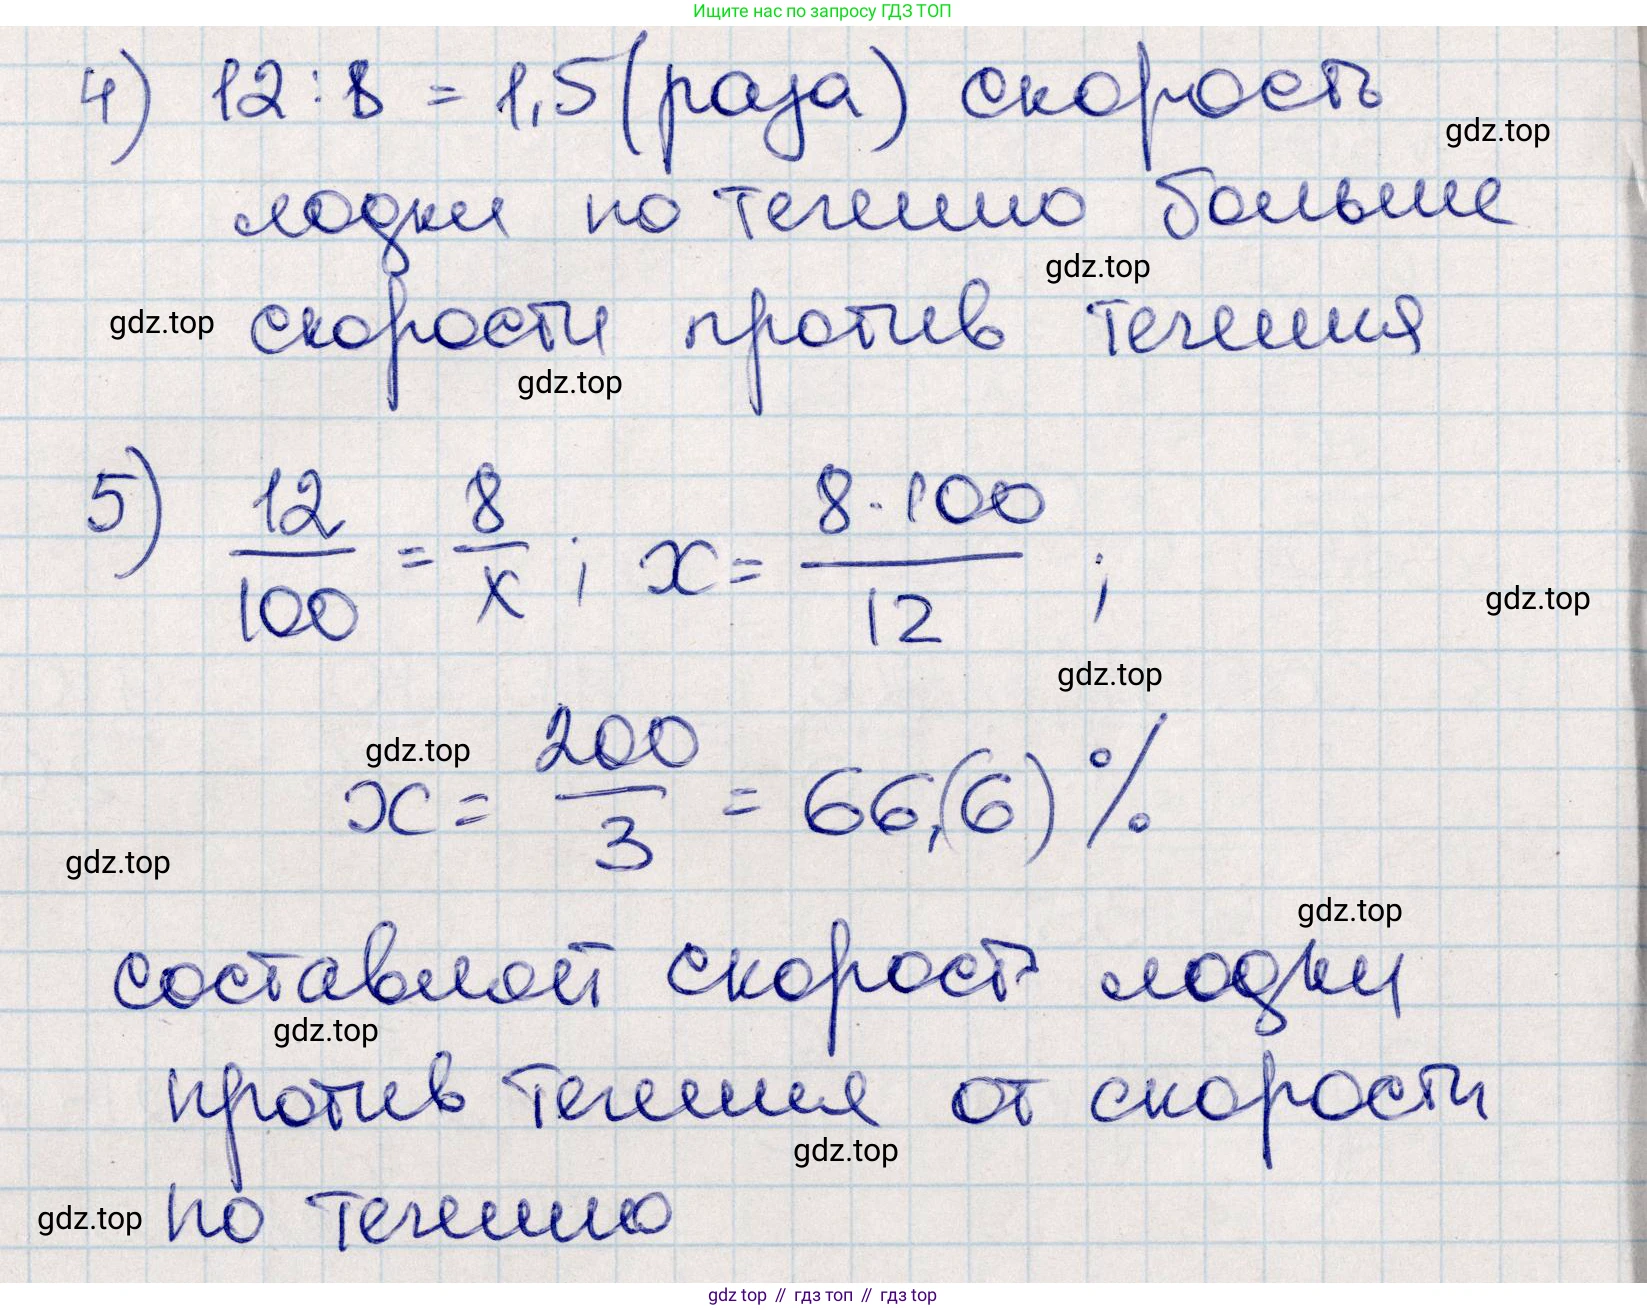 Ищите нас по запросу ГДЗ ТОП
4) 12 : 8 = 1,5 (раза) скорость
gdz.top
лодки по течению больше
gdz.top
gdz.top
скорости против течения
gdz.top
5) 12/100 = 8/x ; x = 8·100/12 ;
gdz.top
gdz.top
gdz.top
x = 200/3 = 66,(6) %
gdz.top
gdz.top
составляет скорость лодки
gdz.top
против течения от скорости
gdz.top
gdz.top
по течению
gdz top // гдз топ // гдз top